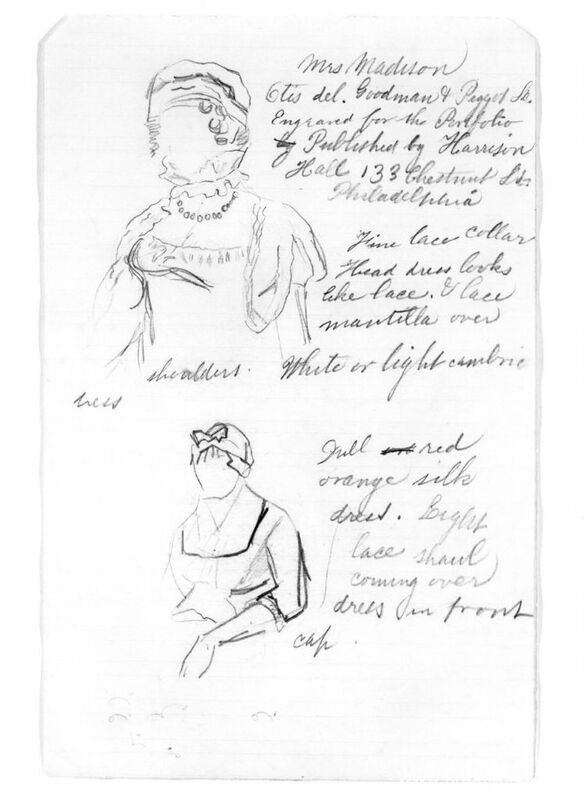 Mrs Madison
Otis del. Goodman & Piggot Sc.
Engraved for the Portfolio
by Published by Harrison
Hall 133 Chestnut St.
Philadelphia
Fine lace collar
Head dress looks
like lace. & lace
mantilla over
shoulders. White or light cambric
dress
Full red
orange silk
dress. Light
lace shaul
coming over
dress in front
cap.